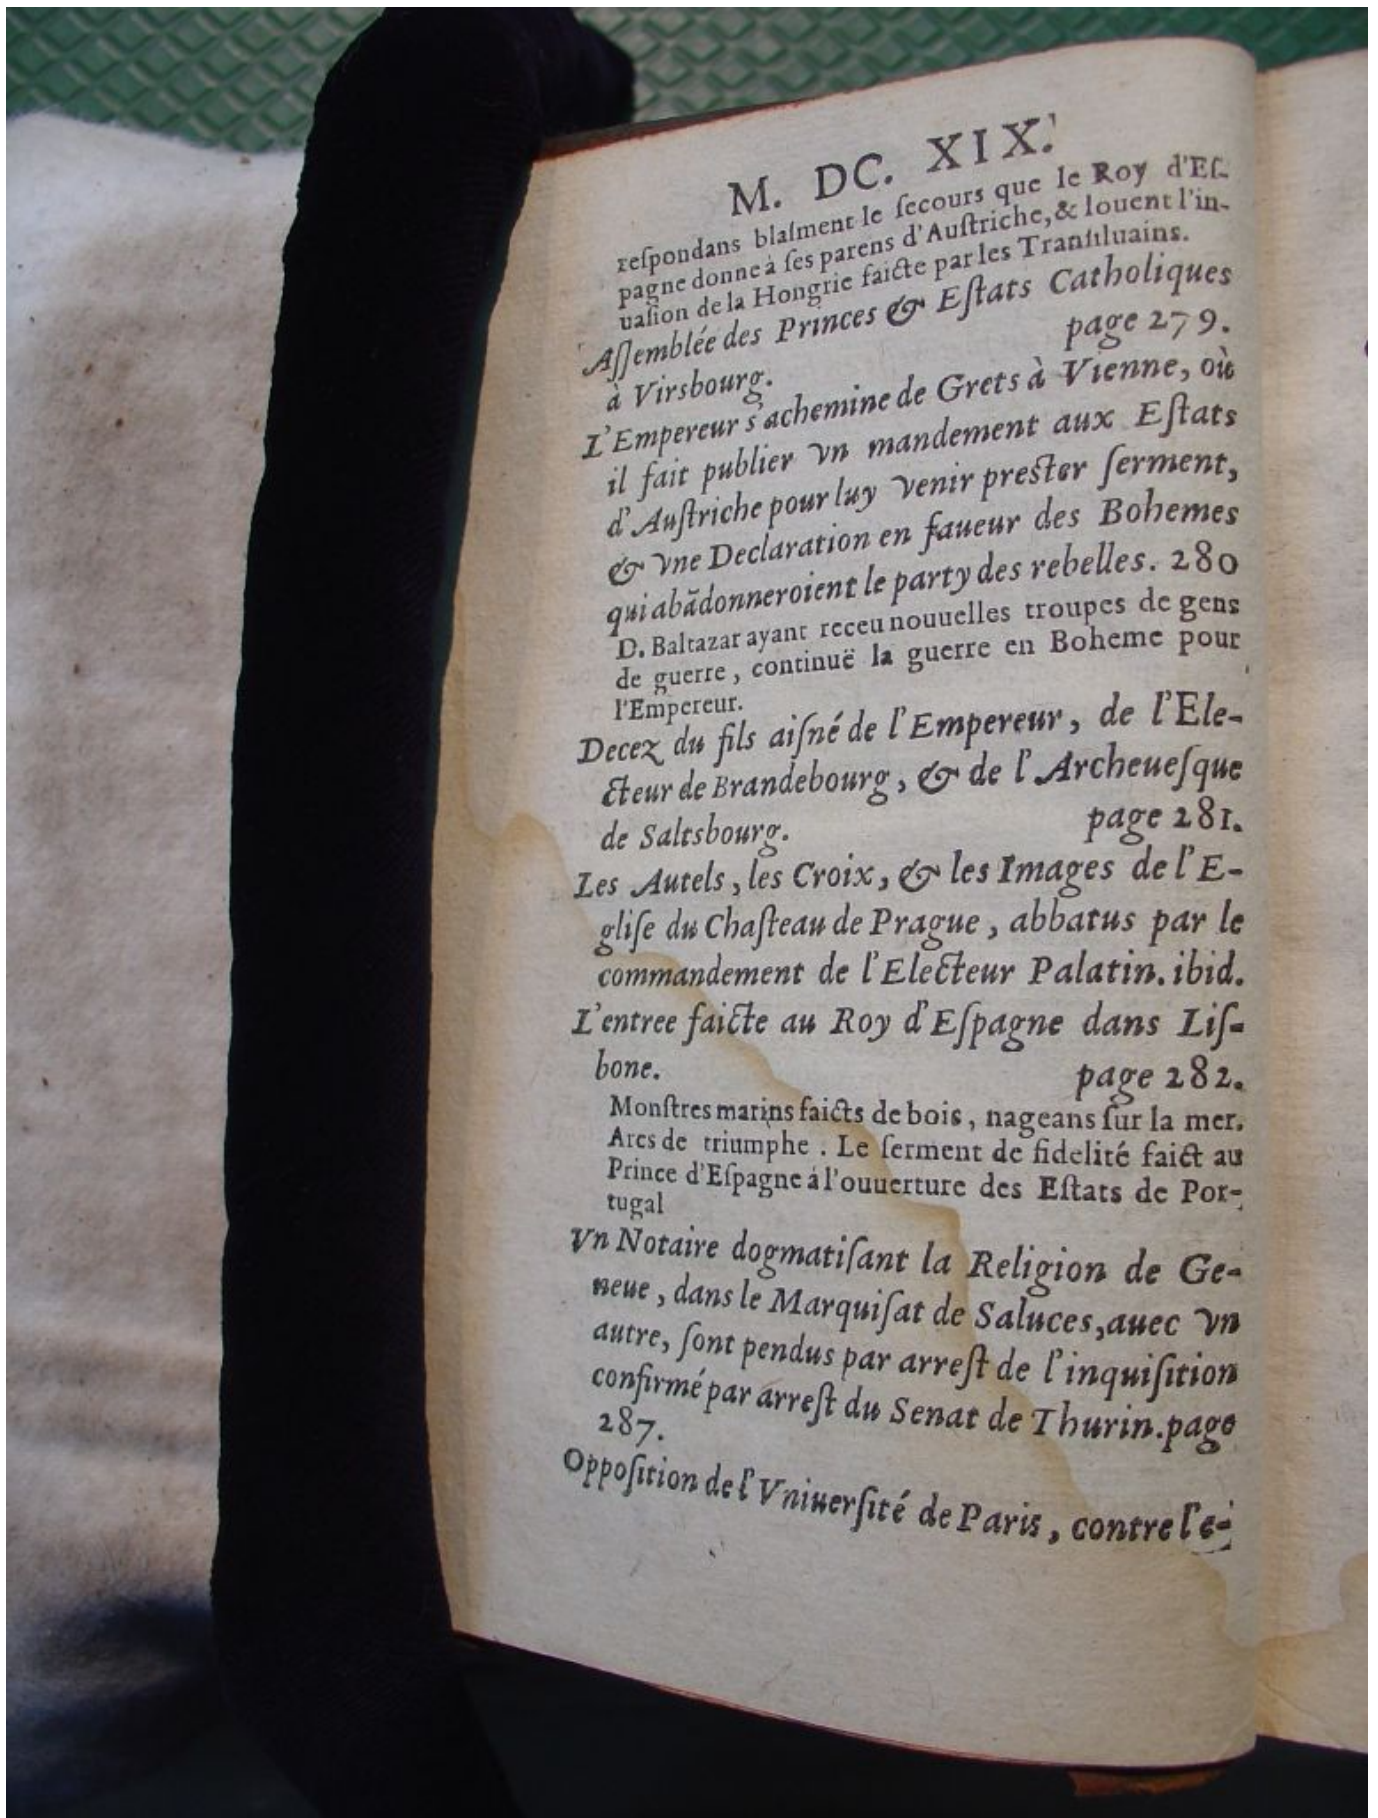 M. DC. XIX.
reſpondans blaſment le ſecours que le Roy d'Eſ-
pagne donne à ſes parens d'Auſtriche, & louent l'in-
uaſion de la Hongrie faicte par les Tranſiluains.
Aſſemblée des Princes & Eſtats Catholiques
à Virsbourg. page 279.
L'Empereur s'achemine de Grets à Vienne, où
il fait publier vn mandement aux Eſtats
d'Auſtriche pour luy venir preſter ſerment,
& vne Declaration en faueur des Bohemes
qui abãdonneroient le party des rebelles. 280
D. Baltazar ayant receu nouuelles troupes de gens
de guerre, continuë la guerre en Boheme pour
l'Empereur.
Decez du fils aiſné de l'Empereur, de l'Ele-
cteur de Brandebourg, & de l'Archeueſque
de Saltsbourg. page 281.
Les Autels, les Croix, & les Images de l'E-
gliſe du Chaſteau de Prague, abbatus par le
commandement de l'Electeur Palatin. ibid.
L'entree faicte au Roy d'Eſpagne dans Liſ-
bone. page 282.
Monſtres marins faicts de bois, nageans ſur la mer.
Arcs de triumphe. Le ſerment de fidelité faict au
Prince d'Eſpagne à l'ouuerture des Eſtats de Por-
tugal
Vn Notaire dogmatiſant la Religion de Ge-
neue, dans le Marquiſat de Saluces, auec vn
autre, ſont pendus par arreſt de l'inquiſition
confirmé par arreſt du Senat de Thurin. page
287.
Oppoſition de l'Vniuerſité de Paris, contre l'e-